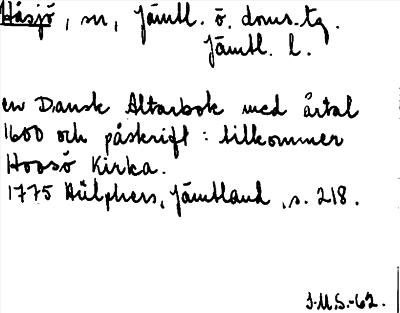 Håsjö, sn, Jämtl. ö. doms.tg.
Jämtl. l.
en Dansk Altarbok med årtal
1600 och påskrift: tillkommer
Hoosö Kirka.
1775 Hülphers, Jämtland, s. 218.
J.M.S.-62.